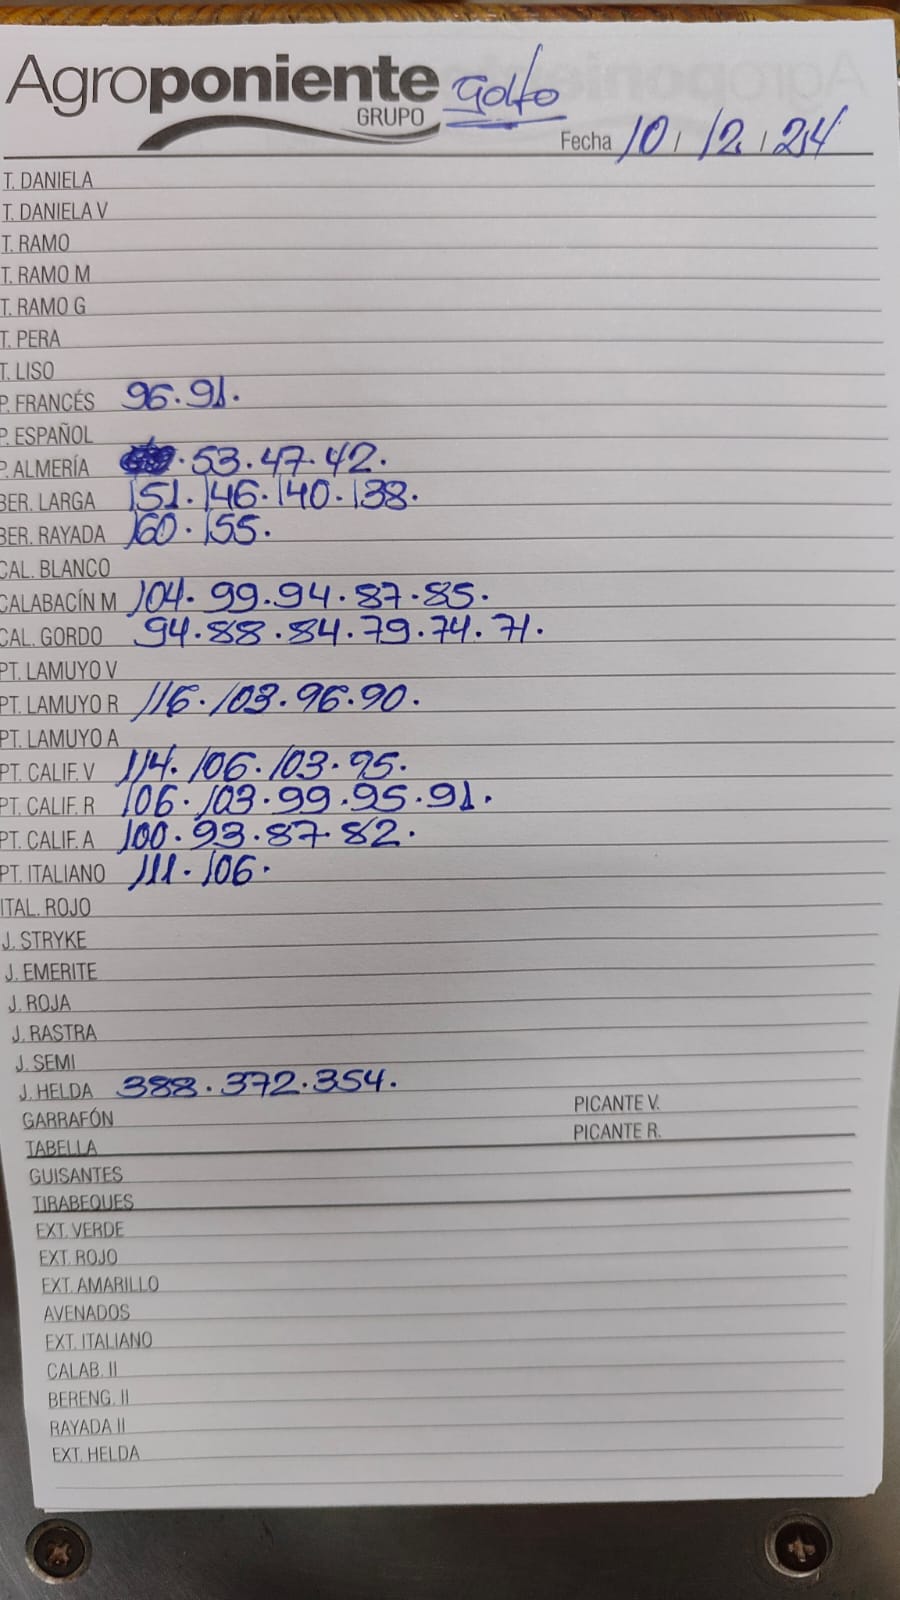 Agroponiente Golfo
GRUPO
Fecha 10 / 12 / 24
T. DANIELA
T. DANIELA V
T. RAMO
T. RAMO M
T. RAMO G
T. PERA
T. LISO
P. FRANCÉS 96. 91.
P. ESPAÑOL
P. ALMERÍA . 53. 47. 42.
BER. LARGA 151. 146. 140. 138.
BER. RAYADA 160. 155.
CAL. BLANCO
CALABACÍN M 104. 99. 94. 87. 85.
CAL. GORDO 94. 88. 84. 79. 74. 71.
PT. LAMUYO V
PT. LAMUYO R 116. 103. 96. 90.
PT. LAMUYO A
PT. CALIF. V 114. 106. 103. 95.
PT. CALIF. R 106. 103. 99. 95. 91.
PT. CALIF. A 100. 93. 87. 82.
PT. ITALIANO 111. 106.
ITAL. ROJO
J. STRYKE
J. EMERITE
J. ROJA
J. RASTRA
J. SEMI
J. HELDA 388. 372. 354.
GARRAFÓN PICANTE V.
TABELLA PICANTE R.
GUISANTES
TIRABEQUES
EXT. VERDE
EXT. ROJO
EXT. AMARILLO
AVENADOS
EXT. ITALIANO
CALAB. II
BERENG. II
RAYADA II
EXT. HELDA